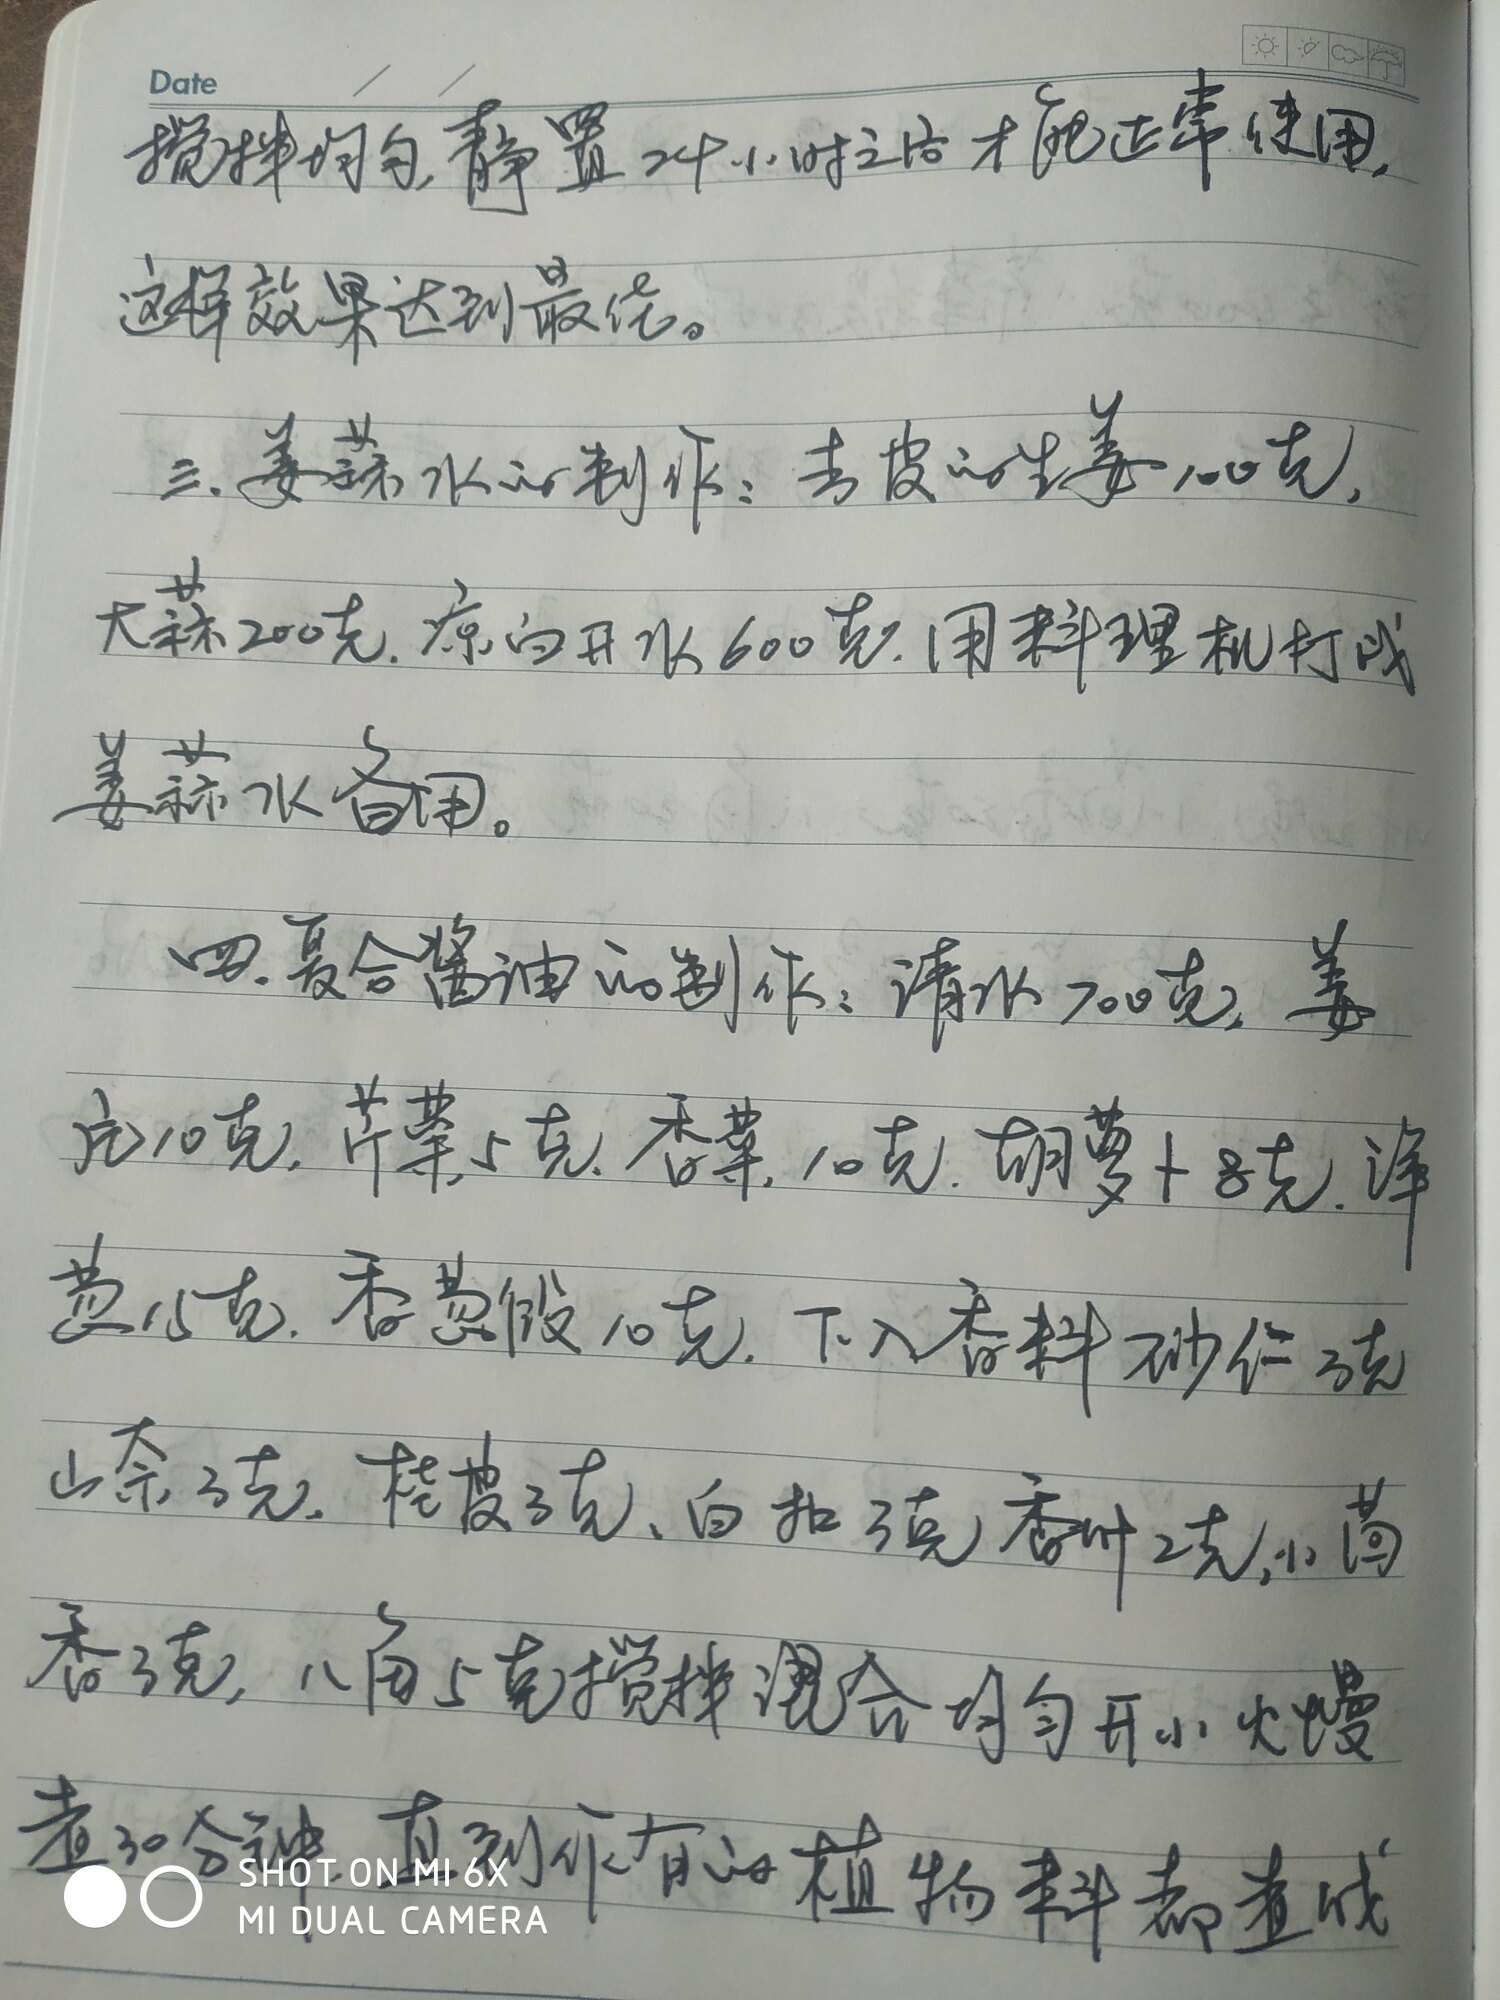 Date
搅拌均匀,静置24小时之后才能正常使用,
这样效果达到最佳。
三.姜蒜水的制作:去皮的生姜100克,
大蒜200克.凉白开水600克.用料理机打成
姜蒜水备用。
四.复合酱油的制作:清水700克,姜
片10克.芹菜5克.香菜.10克.胡萝卜8克.洋
葱15克.香葱段10克.下入香料砂仁3克
山奈3克.桂皮3克、白扣3克香叶2克,小茴
香3克,八角5克搅拌混合均匀开小火慢
煮30分钟.直到所有的植物料都煮成
SHOT ON MI 6X
MI DUAL CAMERA